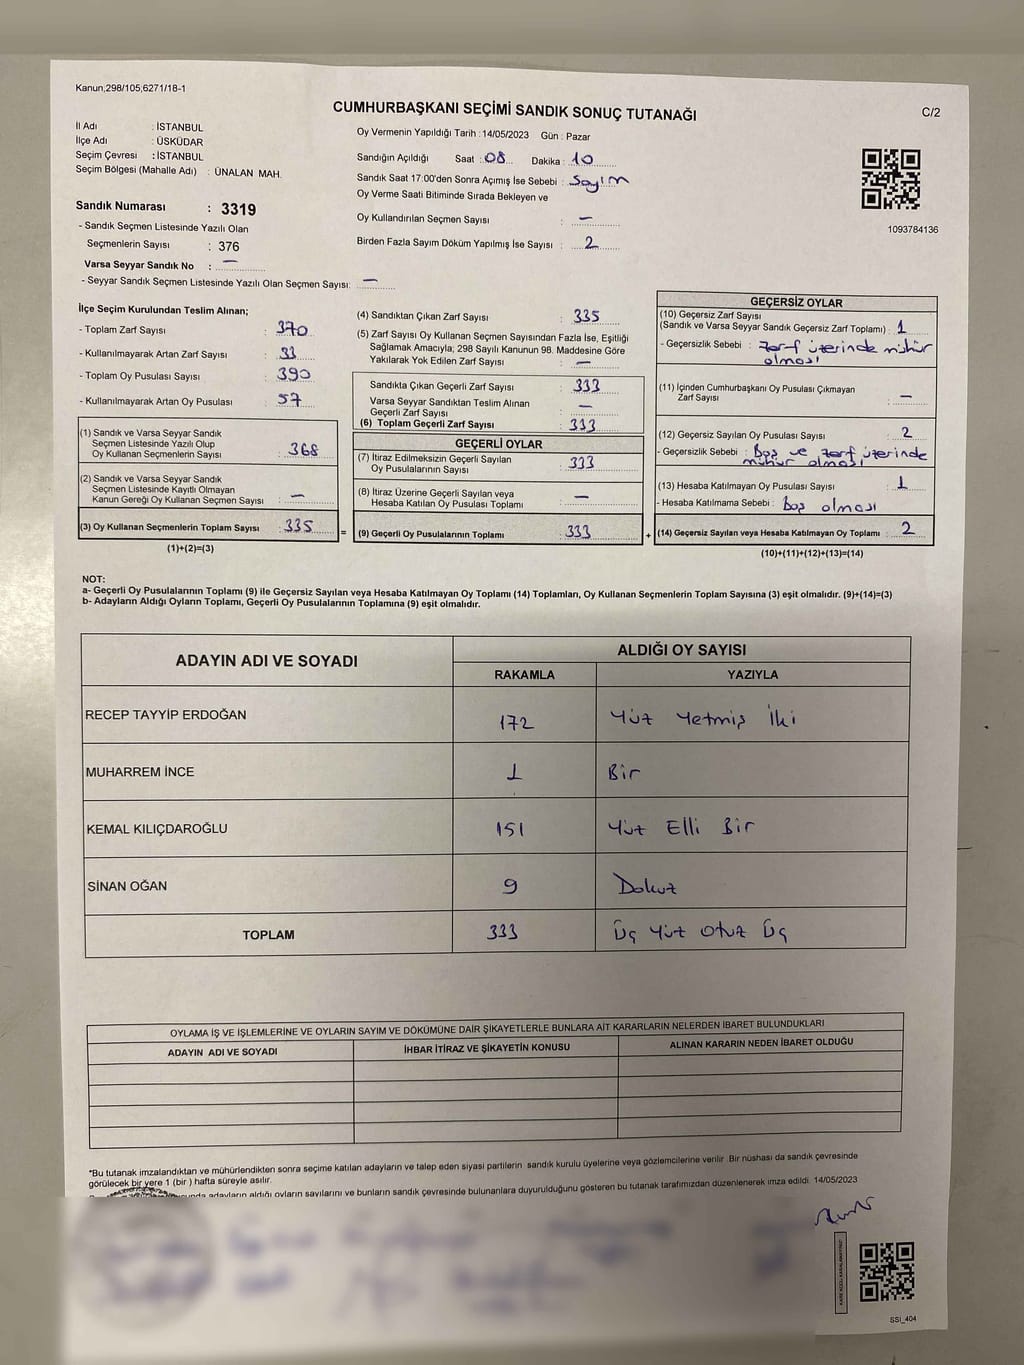 Kanun;298/105,6271/18-1
CUMHURBAŞKANI SEÇİMİ SANDIK SONUÇ TUTANAĞI
C/2
İl Adı : İSTANBUL
İlçe Adı : ÜSKÜDAR
Seçim Çevresi : İSTANBUL
Seçim Bölgesi (Mahalle Adı) : ÜNALAN MAH.
Sandık Numarası : 3319
- Sandık Seçmen Listesinde Yazılı Olan
Seçmenlerin Sayısı : 376
Varsa Seyyar Sandık No : —
- Seyyar Sandık Seçmen Listesinde Yazılı Olan Seçmen Sayısı: —
Oy Vermenin Yapıldığı Tarih : 14/05/2023 Gün : Pazar
Sandığın Açıldığı Saat : 08 Dakika : 10
Sandık Saat 17:00'den Sonra Açımış İse Sebebi : Sayım
Oy Verme Saati Bitiminde Sırada Bekleyen ve
Oy Kullandırılan Seçmen Sayısı : —
Birden Fazla Sayım Döküm Yapılmış İse Sayısı : 2
1093784136
İlçe Seçim Kurulundan Teslim Alınan;
- Toplam Zarf Sayısı : 370
- Kullanılmayarak Artan Zarf Sayısı : 33
- Toplam Oy Pusulası Sayısı : 390
- Kullanılmayarak Artan Oy Pusulası : 57
(1) Sandık ve Varsa Seyyar Sandık
Seçmen Listesinde Yazılı Olup
Oy Kullanan Seçmenlerin Sayısı : 368
(2) Sandık ve Varsa Seyyar Sandık
Seçmen Listesinde Kayıtlı Olmayan
Kanun Gereği Oy Kullanan Seçmen Sayısı : —
(3) Oy Kullanan Seçmenlerin Toplam Sayısı : 335 =
(1)+(2)=(3)
(4) Sandıktan Çıkan Zarf Sayısı : 335
(5) Zarf Sayısı Oy Kullanan Seçmen Sayısından Fazla İse, Eşitliği
Sağlamak Amacıyla; 298 Sayılı Kanunun 98. Maddesine Göre
Yakılarak Yok Edilen Zarf Sayısı : —
Sandıkta Çıkan Geçerli Zarf Sayısı : 333
Varsa Seyyar Sandıktan Teslim Alınan
Geçerli Zarf Sayısı : —
(6) Toplam Geçerli Zarf Sayısı : 333
GEÇERLİ OYLAR
(7) İtiraz Edilmeksizin Geçerli Sayılan
Oy Pusulalarının Sayısı : 333
(8) İtiraz Üzerine Geçerli Sayılan veya
Hesaba Katılan Oy Pusulası Toplamı : —
(9) Geçerli Oy Pusulalarının Toplamı : 333 +
GEÇERSİZ OYLAR
(10) Geçersiz Zarf Sayısı
(Sandık ve Varsa Seyyar Sandık Geçersiz Zarf Toplamı) : 1
- Geçersizlik Sebebi : zarf üzerinde mühür
olması
(11) İçinden Cumhurbaşkanı Oy Pusulası Çıkmayan
Zarf Sayısı : —
(12) Geçersiz Sayılan Oy Pusulası Sayısı : 2
- Geçersizlik Sebebi : Boş ve zarf üzerinde
mühür olması
(13) Hesaba Katılmayan Oy Pusulası Sayısı : 1
- Hesaba Katılmama Sebebi : boş olması
(14) Geçersiz Sayılan veya Hesaba Katılmayan Oy Toplamı : 2
(10)+(11)+(12)+(13)=(14)
NOT:
a- Geçerli Oy Pusulalarının Toplamı (9) ile Geçersiz Sayılan veya Hesaba Katılmayan Oy Toplamı (14) Toplamları, Oy Kullanan Seçmenlerin Toplam Sayısına (3) eşit olmalıdır. (9)+(14)=(3)
b- Adayların Aldığı Oyların Toplamı, Geçerli Oy Pusulalarının Toplamına (9) eşit olmalıdır.
ADAYIN ADI VE SOYADI
ALDIĞI OY SAYISI
RAKAMLA YAZIYLA
RECEP TAYYİP ERDOĞAN 172 Yüz Yetmiş İki
MUHARREM İNCE 1 Bir
KEMAL KILIÇDAROĞLU 151 Yüz Elli Bir
SİNAN OĞAN 9 Dokuz
TOPLAM 333 Üç Yüz Otuz Üç
OYLAMA İŞ VE İŞLEMLERİNE VE OYLARIN SAYIM VE DÖKÜMÜNE DAİR ŞİKAYETLERLE BUNLARA AİT KARARLARIN NELERDEN İBARET BULUNDUKLARI
ADAYIN ADI VE SOYADI İHBAR İTİRAZ VE ŞİKAYETİN KONUSU ALINAN KARARIN NEDEN İBARET OLDUĞU
*Bu tutanak imzalandıktan ve mühürlendikten sonra seçime katılan adayların ve talep eden siyasi partilerin sandık kurulu üyelerine veya gözlemcilerine verilir. Bir nüshası da sandık çevresinde
görülecek bir yere 1 (bir ) hafta süreyle asılır.
adayların aldığı oyların sayılarını ve bunların sandık çevresinde bulunanlara duyurulduğunu gösteren bu tutanak tarafımızdan düzenlenerek imza edildi. 14/05/2023
SSİ_404